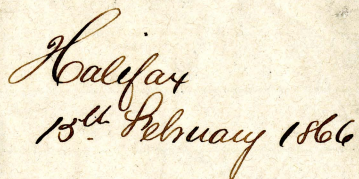 Halifax
15th February 1866